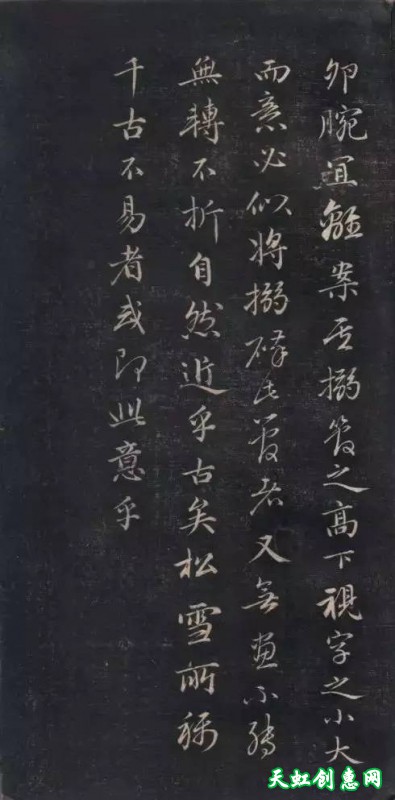 即腕宜離案其搦管之高下視字之小大
而意必似將搦碎此管者又無畫不轉
無轉不折自然近乎古矣松雪所稱
千古不易者或即此意乎
天虹创惠网